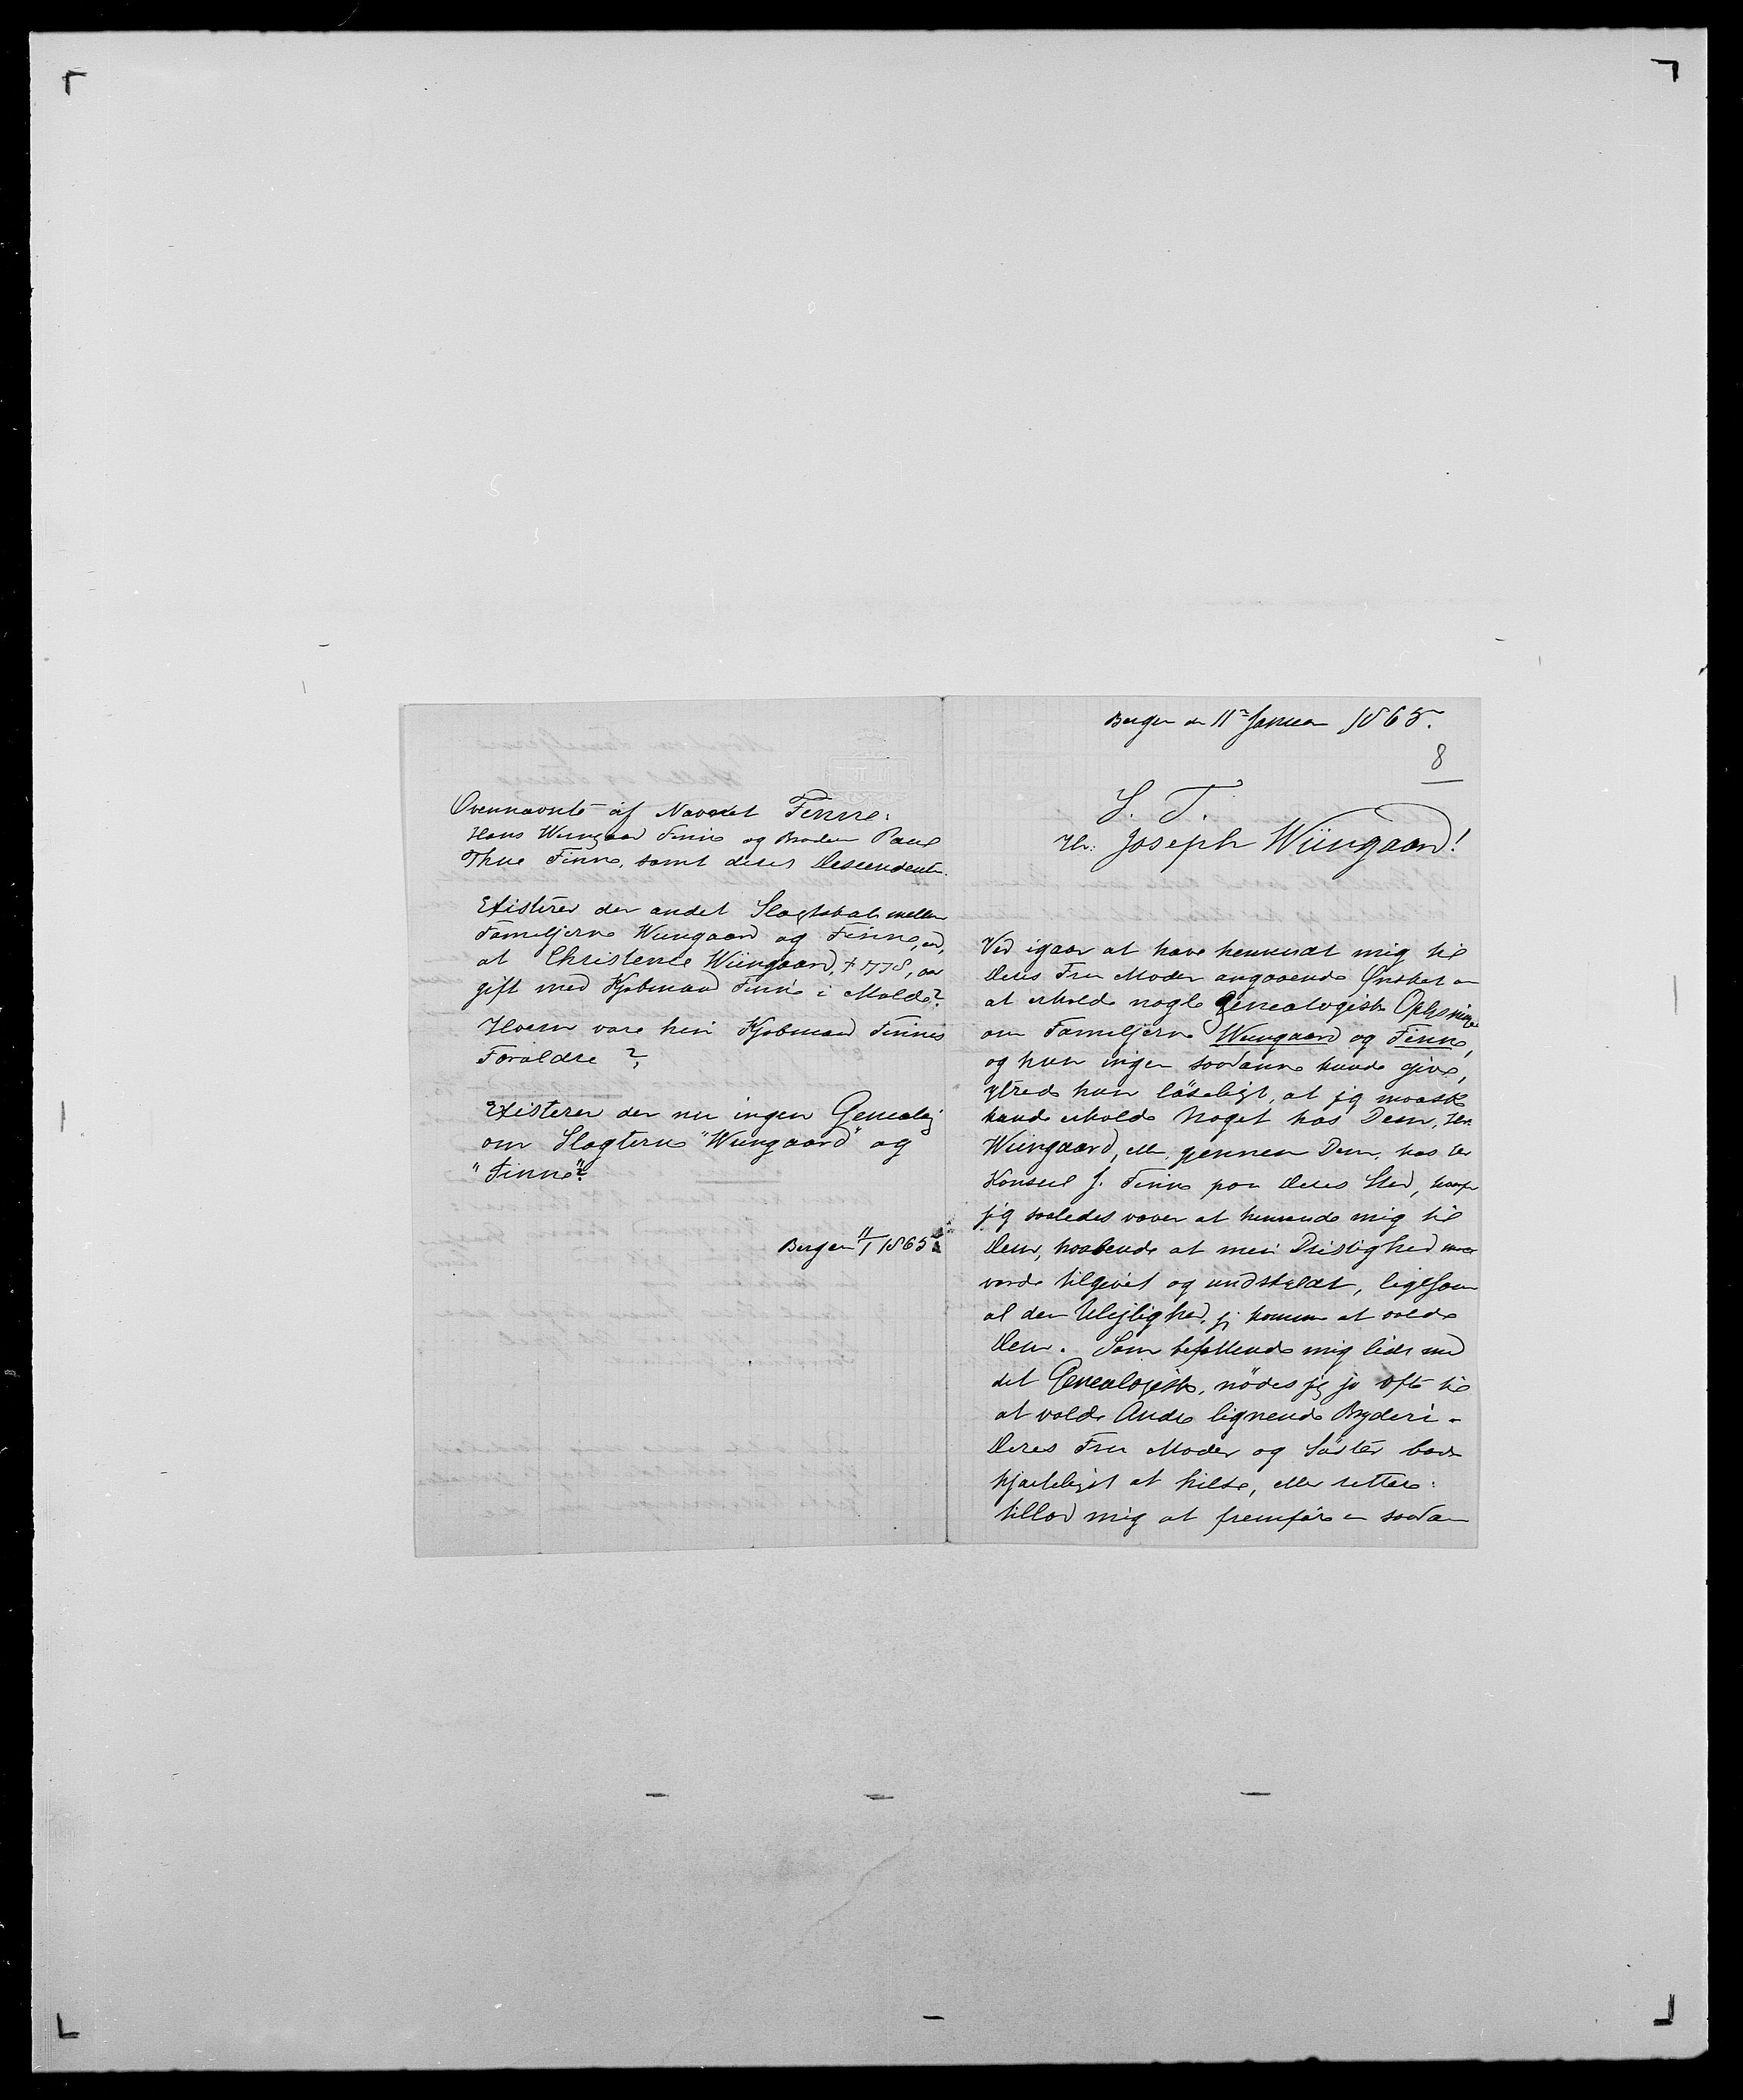 Ovennævnte af Navnet Finne:
Hans Wiingaard Finne og Broder Paul
Thue Finne, samt deres Descendenter.
Existerer der andet Slægtskab mellem
Familjerne Wiingaard og Finne, end,
at Christence Wiingaard, † 1778, var
gift med Kjøbmand Finne i Molde?
Hvem vare hin Kjøbmand Finnes
Forældre?
Existerer der nu ingen Genealogi
om Slægterne "Wiingaard" og
"Finne"?
Bergen 11/1 1865
Bergen den 11te Januar 1865.
8
S. T.
Hr. Joseph Wiingaard!
Ved igaar at have henvendt mig til
Deres Fru Moder angaaende Ønsket om
at erholde nogle Genealogiske Oplysninger
om Familjerne Wiingaard og Finne,
og hun ingen saadanne kunde give,
ytrede hun löseligt, at jeg maaske
kunde erholde Noget hos Dem, Herr
Wiingaard, eller gennem Dem, hos Herr
Konsul J. Finne paa Deres Sted, hvorfor
jeg saaledes vover at henvende mig til
Dem, haabende at min Dristighed maa
vorde tilgivet og undskyldt, ligesom
al den Ulejlighed, jeg kommer at volde
Dem. Som befattende mig lidt med
det Genealogiske, nödes jeg jo ofte til
at volde Andre lignende Bryderi.
Deres Fru Moder og Söster bade
hjerteligst at hilse, eller rettere:
tillod mig at fremföre en saadan